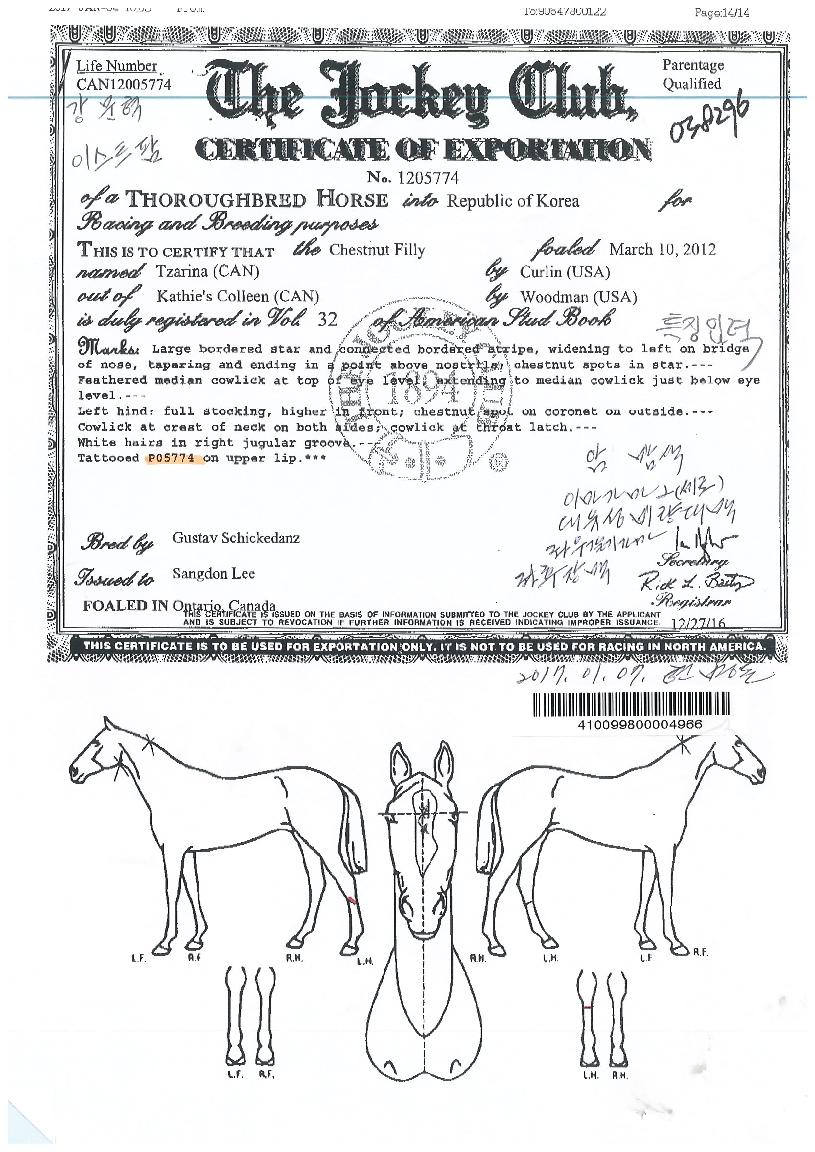 To:90547800122 Page:14/14
Life Number
CAN12005774
The Jockey Club.
Parentage
Qualified
038296
강 윤 혁
이스트 팜
CERTIFICATE OF EXPORTATION
No. 1205774
of a THOROUGHBRED HORSE into Republic of Korea for
Racing and Breeding purposes
THIS IS TO CERTIFY THAT the Chestnut Filly foaled March 10, 2012
named Tzarina (CAN) by Curlin (USA)
out of Kathie's Colleen (CAN) by Woodman (USA)
is duly registered in Vol. 32 of American Stud Book
특징입력
Marks: Large bordered star and connected bordered stripe, widening to left on bridge
of nose, tapering and ending in a point above nostrils; chestnut spots in star.---
Feathered median cowlick at top of eye level, extending to median cowlick just below eye
level.---
Left hind: full stocking, higher in front; chestnut spot on coronet on outside.---
Cowlick at crest of neck on both sides; cowlick at throat latch.---
White hairs in right jugular groove.---
Tattooed P05774 on upper lip.***
THE JOCKEY CLUB
1894
®
Bred by Gustav Schickedanz
Issued to Sangdon Lee
Secretary
Registrar
FOALED IN Ontario, Canada
THIS CERTIFICATE IS ISSUED ON THE BASIS OF INFORMATION SUBMITTED TO THE JOCKEY CLUB BY THE APPLICANT
AND IS SUBJECT TO REVOCATION IF FURTHER INFORMATION IS RECEIVED INDICATING IMPROPER ISSUANCE.
12/27/16
THIS CERTIFICATE IS TO BE USED FOR EXPORTATION ONLY. IT IS NOT TO BE USED FOR RACING IN NORTH AMERICA.
2017. 01. 07.
410099800004966
L.F. R.F. R.H. L.H. R.H. L.H. L.F. R.F.
L.F. R.F. L.H. R.H.